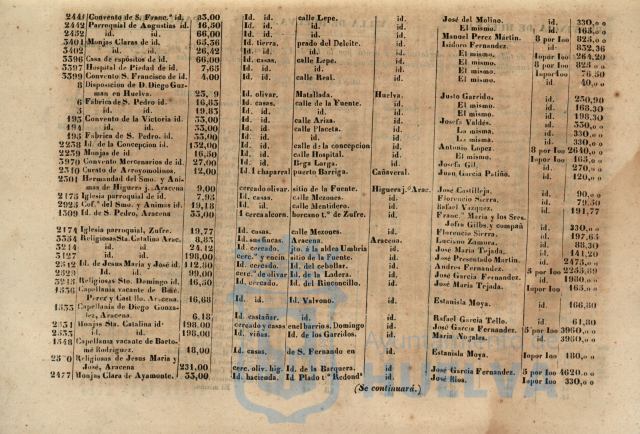 2441 Convento de S. Franc.º id. 33,00 Id. id. calle Lepe. id. José del Molino. id. 330,00
2442 Parroquial de Angustias id. 16,50 Id. id. id. id. El mismo. id. 165,00
2452 id. id. 66,00 Id. id. id. id. Manuel Perez Martin. 8 por 100 825,00
3401 Monjas Claras de id. 63,36 Id. tierra, prado del Deleite. id. Isidoro Fernandez. id. 832,36
3402 id. id. 26,42 Id. id. id. id. El mismo. 10 por 100 264,20
3396 Casa de espósitos de id. 66,00 Id. casas, calle Lepe. id. El mismo. 8 por 100 825,00
3397 Hospital de Piedad de id. 7,65 Id. id. id. id. El mismo. 10 por 100 76,50
3399 Convento S. Francisco de id. 4,00 Id. id. calle Real. id. El mismo. id. 40,00
8 Disposicion de D. Diego Guz-
man en Huelva. Id. olivar. Matallada. Huelva. Justo Garrido. id. 250,90
6 Fábrica de S. Pedro id. 16,83 Id. casas. calle de la Fuente. id. El mismo. id. 168,30
id. id. 19,83 Id. id. id. id. El mismo. id. 198,30
193 Convento de la Victoria id. 33,00 Id. id. calle Ariza. id. Josefa Valdés. id. 330,00
194 id. id. 33,00 Id. id. calle Placeta. id. La misma. id. 330,00
195 Fabrica de S. Pedro id. 33,00 Id. id. id. id. La misma. id. 330,00
2238 Id. de la Concepcion id. 132,00 Id. id. calle de la concepcion id. Antonio Lopez 8 por 100 2640,00
2239 Monjas de id. 16,50 Id. id. calle Hospital. id. El mismo. 10 por 100 165,00
3970 Convento Mercenarios de id. 27,00 Id. id. Bega Larga. id. Josefa Gil. id. 270,00
2310 Curato de Arroyomolinos. 12,00 Id. chaparral puerto Barriga. Cañaveral. Juan Garcia Patiño. id. 120,00
2301 Hermandad del Smo. y Ani-
mas de Higuera j.ª Aracena 9,00 cercado olivar. sitio de la Fuente. Higuera j.ª Arac. José Castilleja. id. 90,00
2178 Iglesia parroquial de id. 7,95 Id. casas. calle Mezones. id. Florencio Sierra. id. 79,50
2923 Cof.ª del Smo. y Animas id. 19,18 Id. id. calle Mentidero. id. Rafael Vazquez. id. 191,77
1309 Id. de S. Pedro, Aracena 33,00 cerca alcorn. horcano t.º de Zufre. id. Franc.ª Maria y los Sres.
Jofra Gilbes y compañ id. 330,00
2174 Iglesia parroquial, Zufre. 19,77 Id. casas. calle Mezones. id. Florencio Sierra. id. 197,65
3384 Religiosas Sta. Catalina Arac. 8,83 Id. sus fincas. Aracena. Aracena. Luciano Zamora. id. 88,30
3214 id. id. 24,12 Id. cercado. jto. á la aldea Umbria id. José Maria Tejada. id. 141,20
3127 id. id. 198,00 cerc.º y encin sitio de la Fuente. id. José Presentado Martin. id. 2475,00
2312 Id. de Jesus Maria y José id. 112,80 Id. cercado. Id. del cebollar. id. Andres Fernandez. 5 por 100 2255,89
2329 id. id. 99,00 cerc.º de olivar Id. de la Ladera. id. José Garcia Fernandez. id. 1980,00
3213 Religiosas Sto. Domingo id. 16,50 Id. cercado. Id. del Rinconcillo. id. José Maria Tejada. 10 por 100 165,00
1336 Capellanía vacante de Bar.
Perez y Castillo. Aracena. 16,68 Id. id. Id. Valvono. id. Estanisla Moya. id. 166,80
1333 Capellanía de Diego Gonza-
lez, Aracena. 6,18 Id. castañar. id. id. Rafael Garcia Tello. id. 61,80
2331 Monjas Sta. Catalina id. 198,00 cercado y casas en el barrio s. Domingo id. José Garcia Fernandez. 5 por 100 3960,00
2333 id. id. 198,00 Id. viñas. Id. de los Garridos. id. Maria Nogales. id. 3960,00
1348 Capellanía vacante de Barto-
mé Rodriguez. 18,00 Id. casas. de S. Fernando en id. Estanisla Moya. 10 por 100 180,00
2330 Religiosas de Jesus Maria y
José, Aracena 231,00 cerc. oliv. hig. Id. de la Barquera. id. José Garcia Fernandez. 5 por 100 4620,00
2477 Monjas Clara de Ayamonte. 33,00 Id. hacienda. Id. Plado t.ª Redond.ª id. José Rios. 10 por 100 330,00
(Se continuará.)
HUELVA